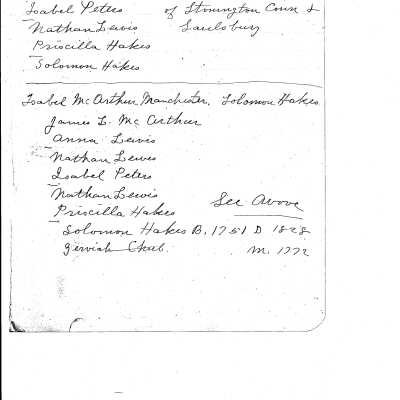 Isabel Peters of Stonington Conn &
Nathan Lewis Saulsbury
Priscilla Hakes
Solomon Hakes
Isabel McArthur Manchester, Solomon Hakes
James L. McArthur
Anna Lewis
Nathan Lewis
Isabel Peters
Nathan Lewis
Priscilla Hakes See Above
Solomon Hakes B. 1751 D 1828
m. 1772